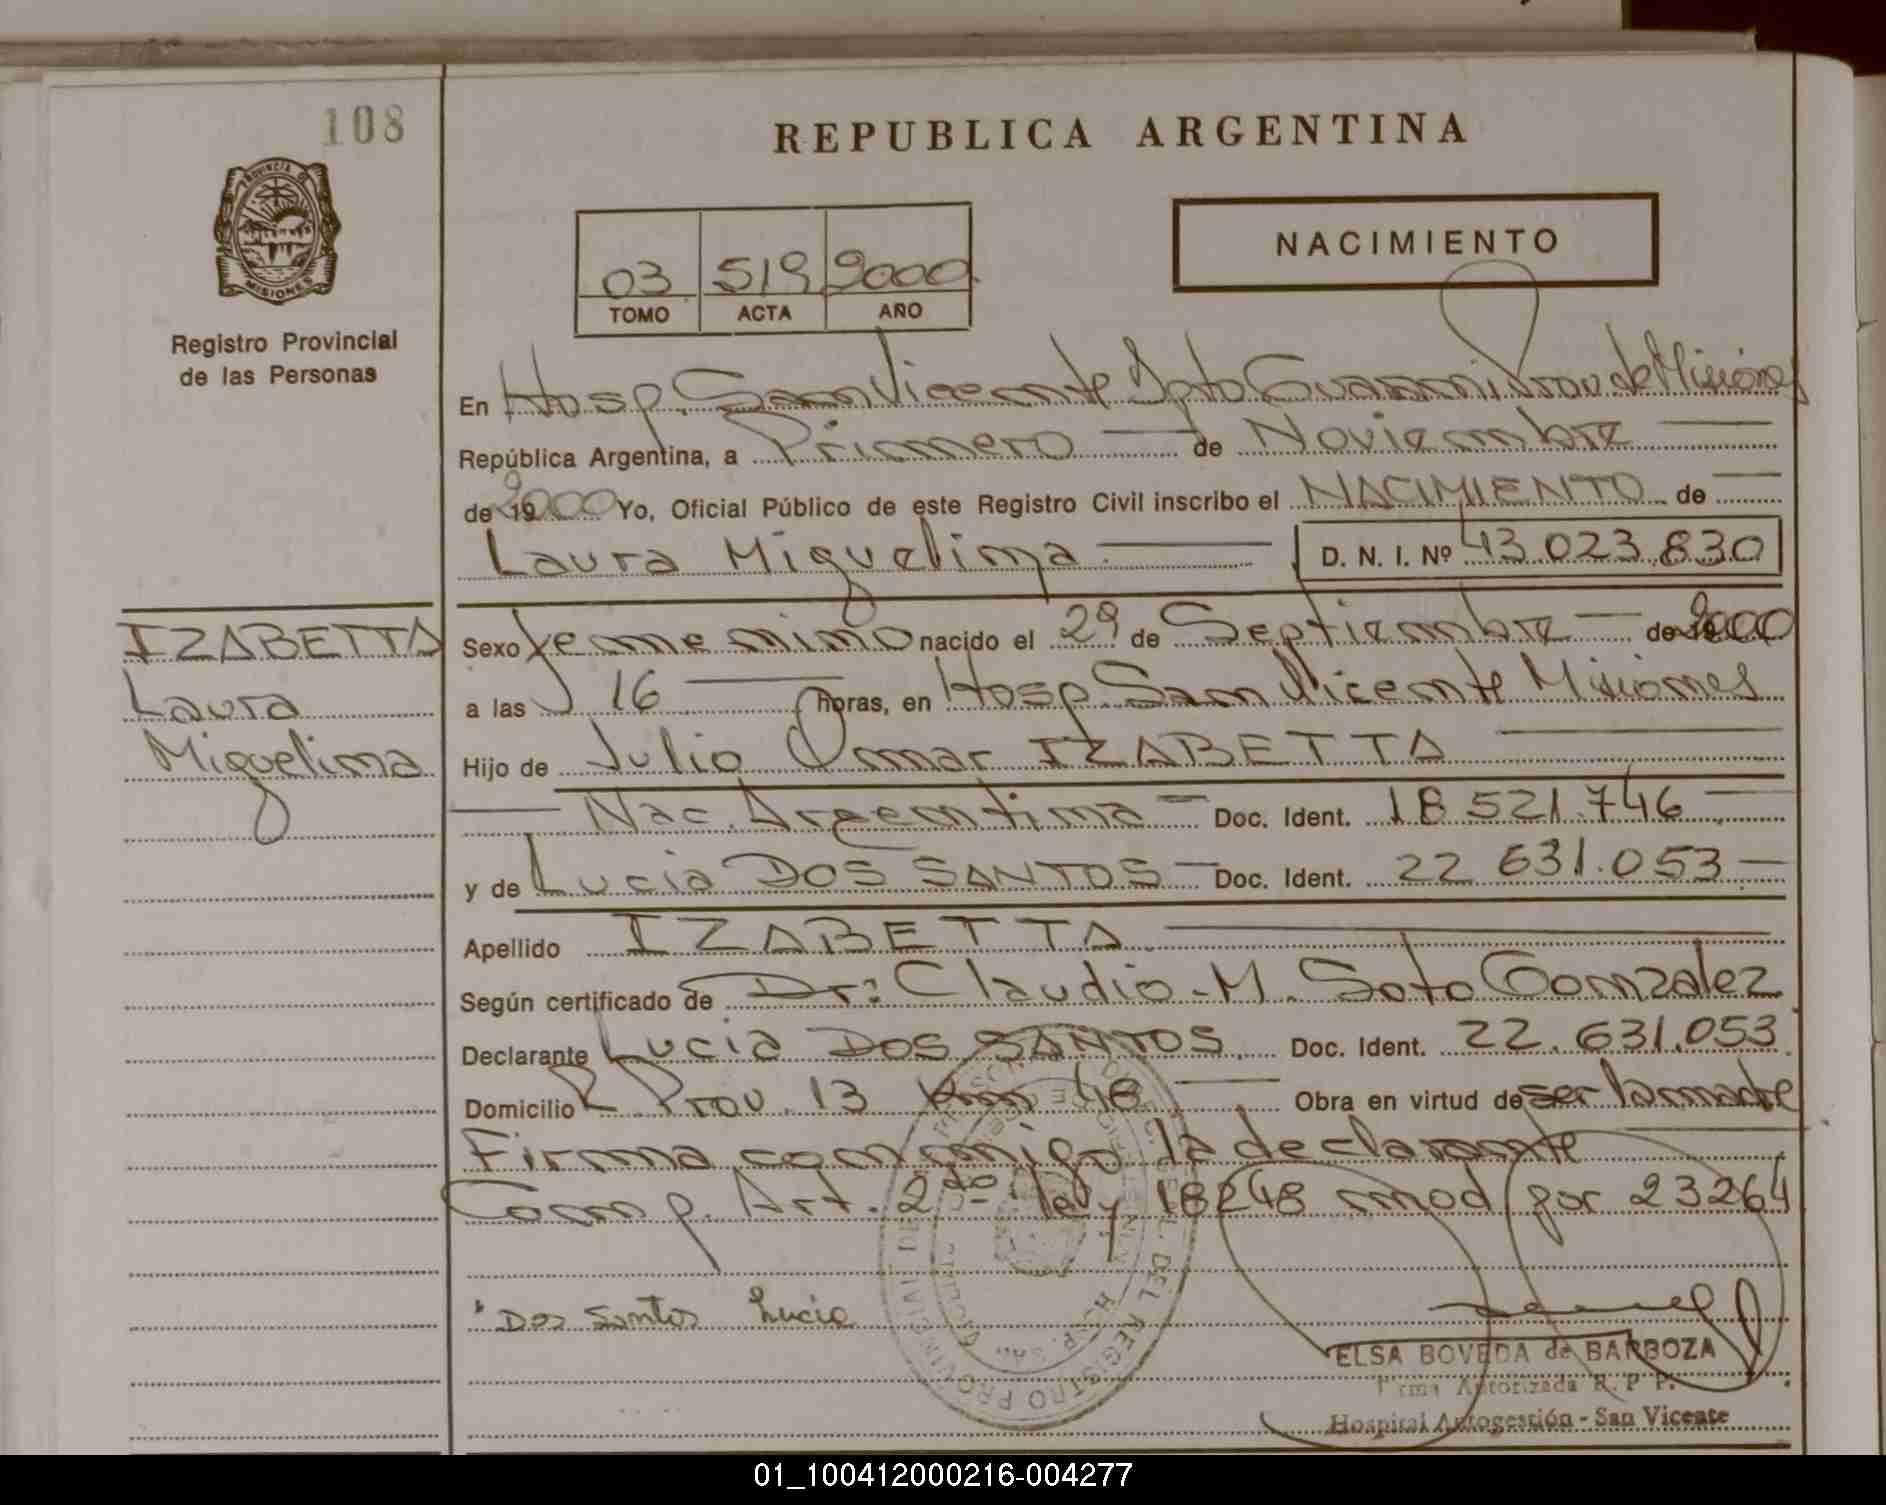 108
REPUBLICA ARGENTINA
PROVINCIA DE
MISIONES
Registro Provincial
de las Personas
03 519 2000
TOMO ACTA AÑO
NACIMIENTO
En Hosp. San Vicente Dpto Guarani Prov. de Misiones
República Argentina, a Primero de Noviembre
de 19 2000 Yo, Oficial Público de este Registro Civil inscribo el NACIMIENTO de
Laura Miguelina D. N. I. Nº 43.023.830
IZABETTA
Laura
Miguelina
Sexo femenino nacido el 29 de Septiembre de 2000
a las 16 horas, en Hosp. San Vicente Misiones
Hijo de Julio Omar IZABETTA
Nac. Argentina Doc. Ident. 18 521.746
y de Lucia DOS SANTOS Doc. Ident. 22 631.053
Apellido IZABETTA
Según certificado de Dr: Claudio. M. Soto Gonzalez
Declarante Lucia DOS SANTOS Doc. Ident. 22.631.053
Domicilio R. Prov. 13 Km 48 Obra en virtud de ser la madre
Firma conmigo la declarante
Comp. Art. 2do ley 18248 mod por 23264
Dos Santos Lucia
ELSA BOVEDA de BARBOZA
Firma Autorizada R. P. P.
Hospital Autogestión - San Vicente
01_100412000216-004277